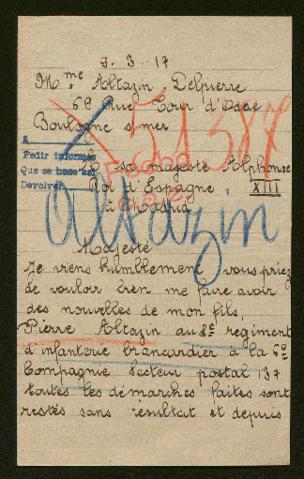 9. 3. 17
Mme Altazin Delpierre
68 Rue Tour d'Odre
Boulogne s/mer
51387
A
Pedir informes
Que se hace así
Devolver
A sa majesté Alphonse
XIII
Roi d'Espagne
à Madrid
altazin
Majesté
Je viens humblement vous priez
de vouloir bien me faire avoir
des nouvelles de mon fils,
Pierre Altazin au 8e regiment
d'infanterie brancardier à la 6e
Compagnie Secteur postal 137
toutes les démarches faites sont
restés sans résultat et depuis